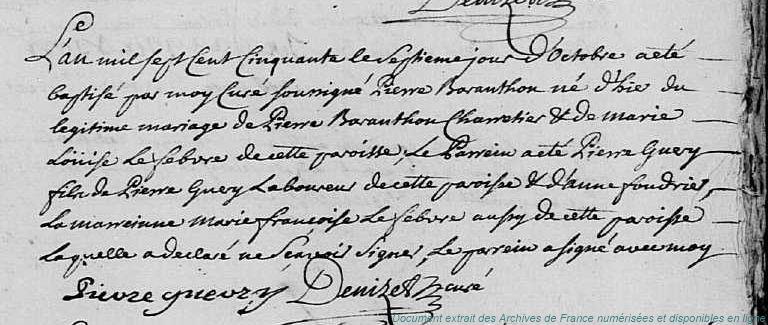 L'an mil sept Cent Cinquante le septieme jour d'Octobre a eté
baptisé par moy Curé soussigné Pierre Baranthon né d'hie du
legitime mariage de Pierre Baranthon Charretier & de Marie
Loüise Lefebvre de cette paroisse, Le Parrein a eté Pierre Guery
fils de Pierre Guery Laboureur de cette paroisse & d'anne foudrier,
La marreinne Marie francoise Lefebvre aussy de cette paroisse
laquelle a declaré ne Scavoir Signer, Le parrein a signé avec moy
Pierre guerry Denizet curé
Document extrait des Archives de France numérisées et disponibles en ligne